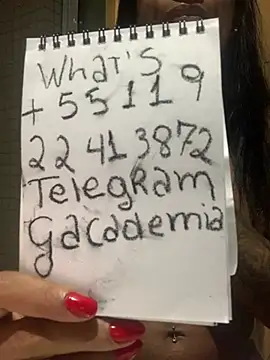 What's
+ 55 11 9
22 41 3872
Telegram
Gacademia